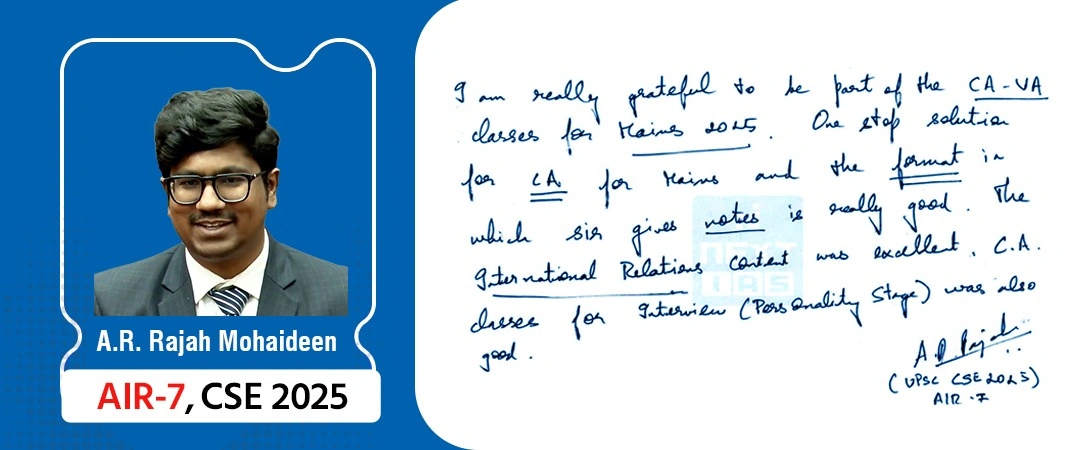 A.R. Rajah Mohaideen
AIR-7, CSE 2025
I am really grateful to be part of the CA-VA
classes for Mains 2025. One stop solution
for CA for Mains and the format in
which sir gives notes is really good. The
International Relations content was excellent. C.A.
classes for Interview (Personality Stage) was also
good.
NEXT
IAS
A.R. Rajah
(UPSC CSE 2025)
AIR-7